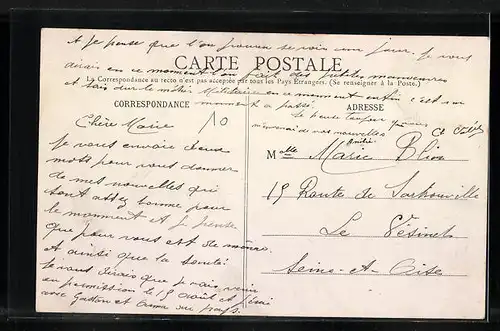 et je pense que l'on pourra se voir un jour. Je vous
dirais en ce moment l'on fait des petites manoeuvres
CARTE POSTALE
La Correspondance au recto n'est pas acceptée par tous les Pays Étrangers. (Se renseigner à la Poste.)
et suis du métier Militaire en ce moment enfin c'est un
moment a passé.
CORRESPONDANCE
ADRESSE
10
de nos nouvelles
Chère Marie
Je vous envoie deux
mots pour vous donner
de mes nouvelles qui
sont assez bonne pour
le momment et je pense
que pour vous est de même.
et ainsi que la santé
Je vous dirais que je vais venir
en permission le 15 Août et
avec Gaston et au pays.
Melle Marie Blin
15 Route de Sartrouville
Le Vésinet
Seine-et-Oise